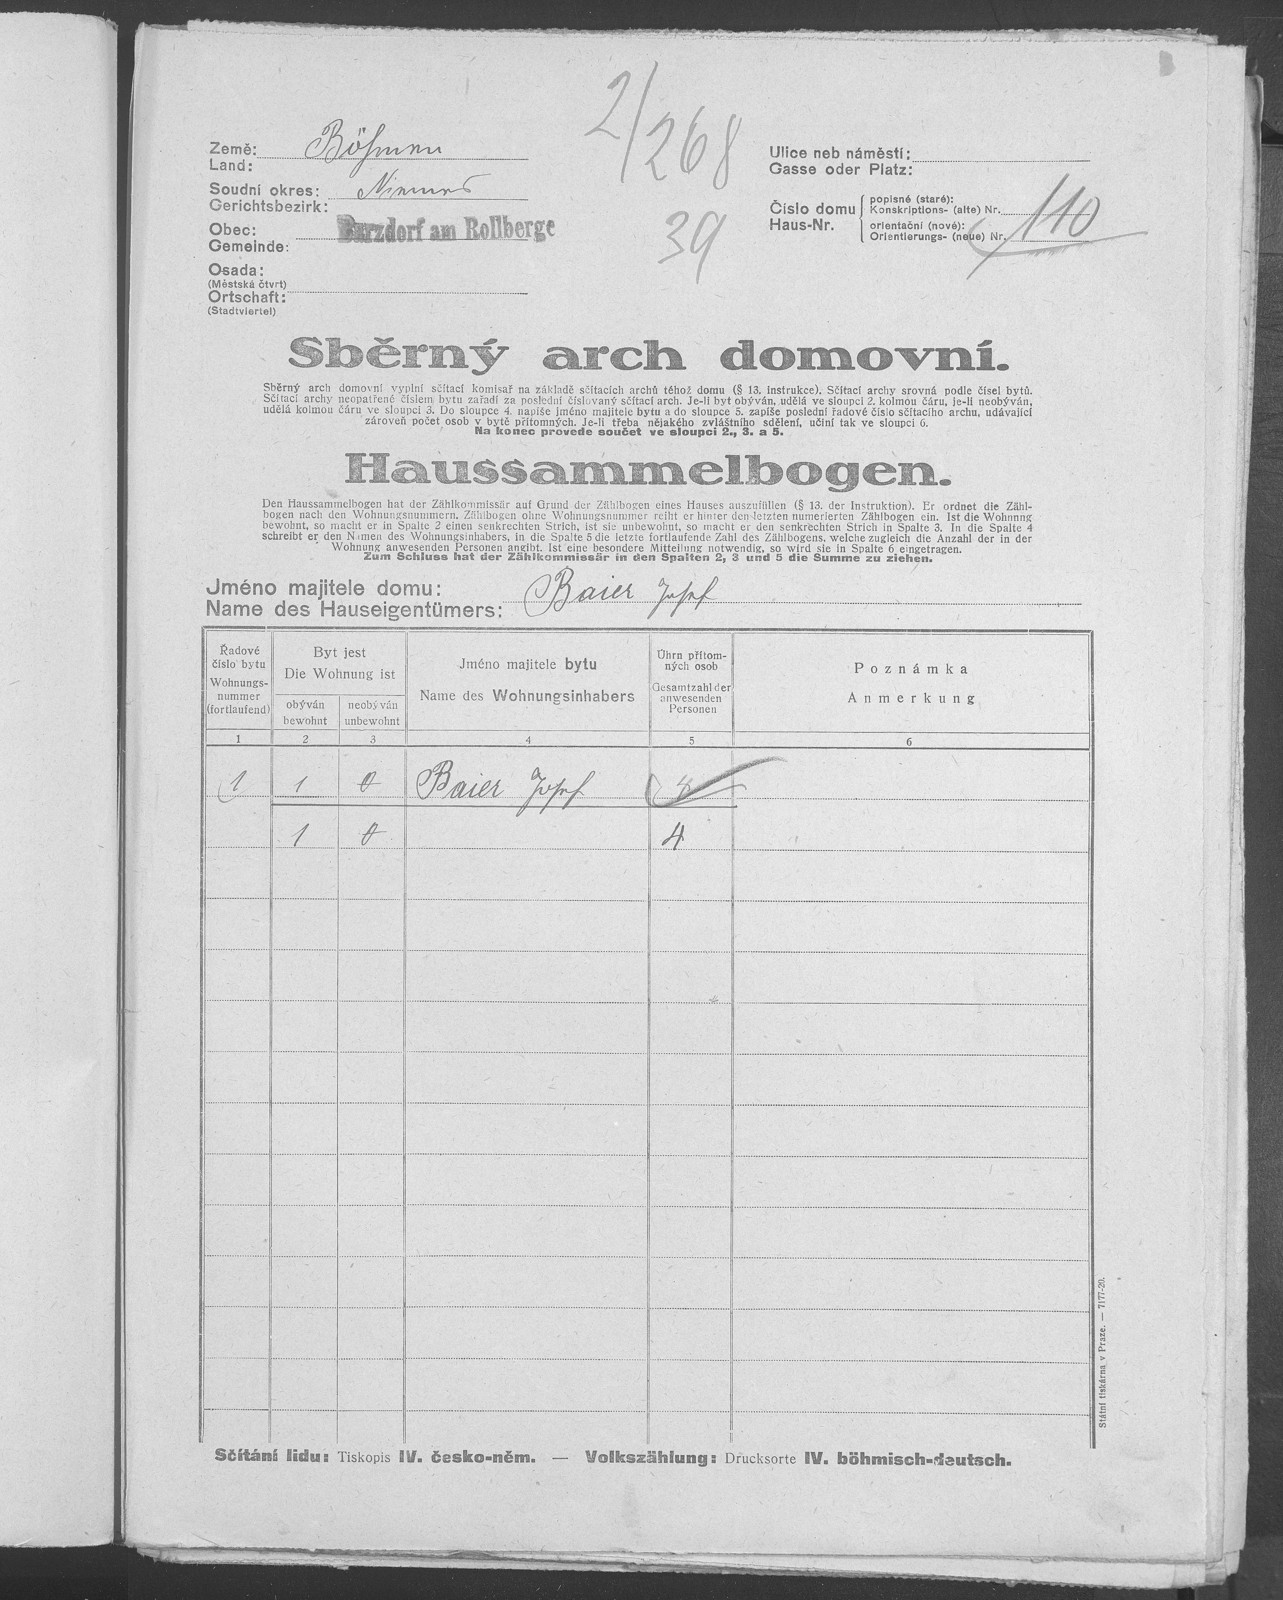 2/268
39
Země: Böhmen
Land:
Soudní okres: Niemes
Gerichtsbezirk:
Obec: Barzdorf am Rollberge
Gemeinde:
Osada:
(Městská čtvrt)
Ortschaft:
(Stadtviertel)
Ulice neb náměstí:
Gasse oder Platz:
Číslo domu
Haus-Nr.
popisné (staré):
Konskriptions- (alte) Nr. 110
orientační (nové):
Orientierungs- (neue) Nr.
Sběrný arch domovní.
Sběrný arch domovní vyplní sčítací komisař na základě sčítacích archů téhož domu (§ 13. instrukce). Sčítací archy srovná podle čísel bytů.
Sčítací archy neopatřené číslem bytu zařadí za poslední číslovaný sčítací arch. Je-li byt obýván, udělá ve sloupci 2. kolmou čáru, je-li neobýván,
udělá kolmou čáru ve sloupci 3. Do sloupce 4. napíše jméno majitele bytu a do sloupce 5. zapíše poslední řadové číslo sčítacího archu, udávající
zároveň počet osob v bytě přítomných. Je-li třeba nějakého zvláštního sdělení, učiní tak ve sloupci 6.
Na konec provede součet ve sloupci 2., 3. a 5.
Haussammelbogen.
Den Haussammelbogen hat der Zählkommissär auf Grund der Zählbogen eines Hauses auszufüllen (§ 13. der Instruktion). Er ordnet die Zähl-
bogen nach den Wohnungsnummern. Zählbogen ohne Wohnungsnummer reiht er hinter den letzten numerierten Zählbogen ein. Ist die Wohnung
bewohnt, so macht er in Spalte 2 einen senkrechten Strich, ist sie unbewohnt, so macht er den senkrechten Strich in Spalte 3. In die Spalte 4
schreibt er den Namen des Wohnungsinhabers, in die Spalte 5 die letzte fortlaufende Zahl des Zählbogens, welche zugleich die Anzahl der in der
Wohnung anwesenden Personen angibt. Ist eine besondere Mitteilung notwendig, so wird sie in Spalte 6 eingetragen.
Zum Schluss hat der Zählkommissär in den Spalten 2, 3 und 5 die Summe zu ziehen.
Jméno majitele domu:
Name des Hauseigentümers: Baier Josef
Řadové číslo bytu
Wohnungs-nummer (fortlaufend)
Byt jest
Die Wohnung ist
obýván
bewohnt
neobýván
unbewohnt
Jméno majitele bytu
Name des Wohnungsinhabers
Úhrn přítom-ných osob
Gesamtzahl der anwesenden Personen
Poznámka
Anmerkung
1 2 3 4 5 6
1 1 0 Baier Josef 4
1 0 4
Sčítání lidu: Tiskopis IV. česko-něm. — Volkszählung: Drucksorte IV. böhmisch-deutsch.
Státní tiskárna v Praze. — 7177-20.